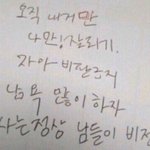 오직 내거만
나만! 잘되기.
자아 비판금지
남 욕 많이 하자
나는정상 남들이 비정